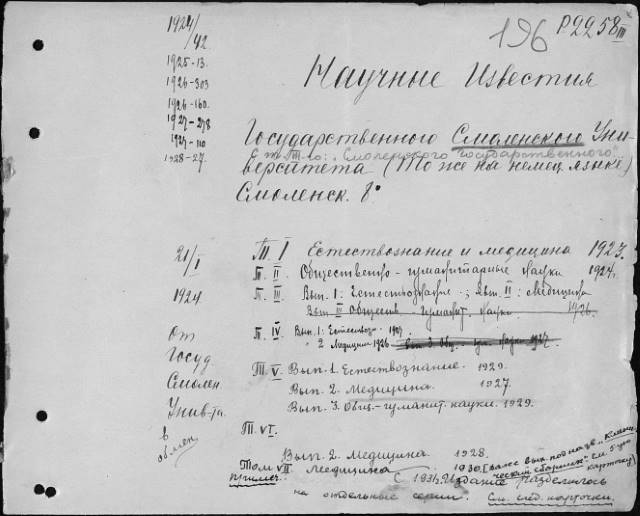 1924
/42
1925-13.
1926-303
1926-160.
1927-278
1927-110
1928-27.
196 P.2258 III
Научные Известия
Государственного Смоленского Уни-
С т. III-го: "Смоленского Государственного"
верситета (То же на немец. языке)
Смоленск. 8°
21/I
1924
от
Госуд
Смолен.
Унив-та.
в
обмен.
Т. I Естествознание и медицина 1923.
Т. II. Обществено-гуманитарные науки 1924г.
Т. III. Вып. 1: Естествознание.; Вып. II: Медицина
Вып III Обществ.-гуманит. науки. 1926.
Т. IV. Вып. 1: Естествозн. 1927.
" 2 Медицина 1926 Вып. 3. Общ.-гум. науки 1927.
Т. V. Вып. 1. Естествознание. 1929.
Вып. 2. Медицина. 1927.
Вып. 3. Общ.-гуманит. науки. 1929.
Т. VI.
Вып. 2. Медицина 1928.
Том VII. Медицина 1930. (далее вых. под назв. "Клинический сборник" См. карточку)
примеч. С 1931г. Издание разделилось
на отдельные серии. См. след. карточки.